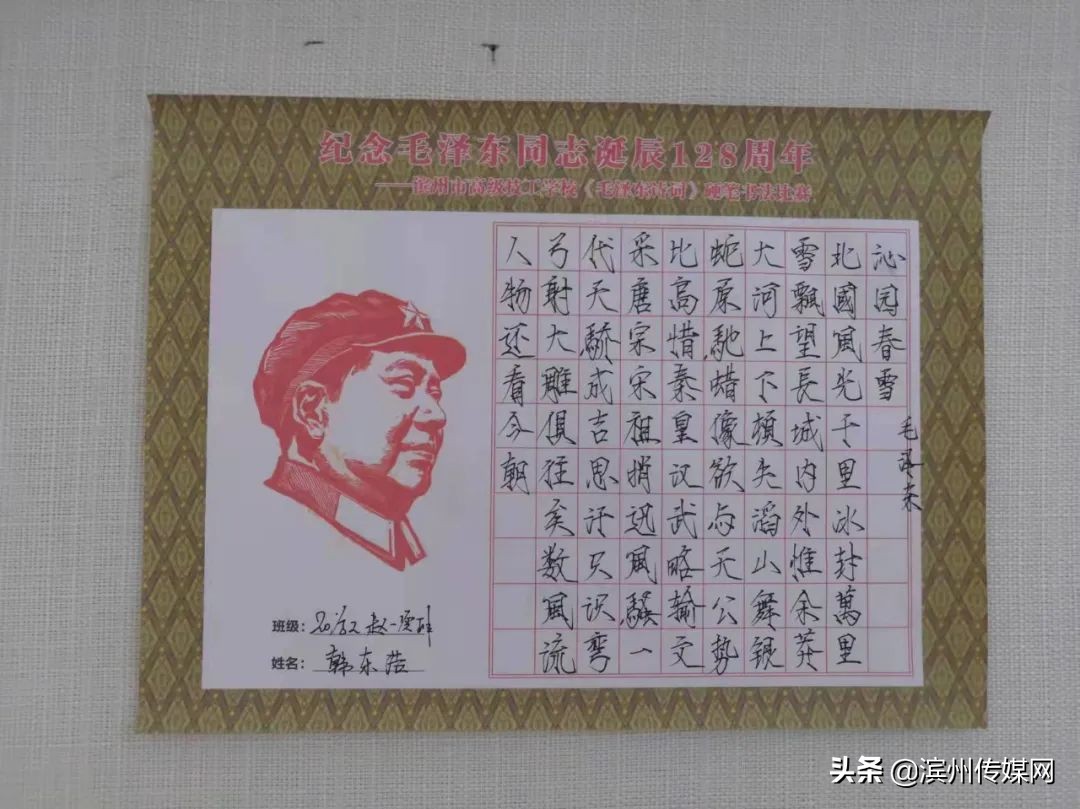 纪念毛泽东同志诞辰128周年
——滨州市高级技工学校《毛泽东诗词》硬笔书法比赛
沁园春雪
毛泽东
北國風光千里冰封萬里
雪飄望長城内外惟余莽
大河上下頓失滔山舞银
蛇原馳蜡像欲与天公势
比高惜秦皇汉武略输文
采唐宋宋祖稍逊風騷一
代天驕成吉思汗只识弯
弓射大雕俱往矣数風流
人物还看今朝
班级：
姓名：韩东
头条 @滨州传媒网